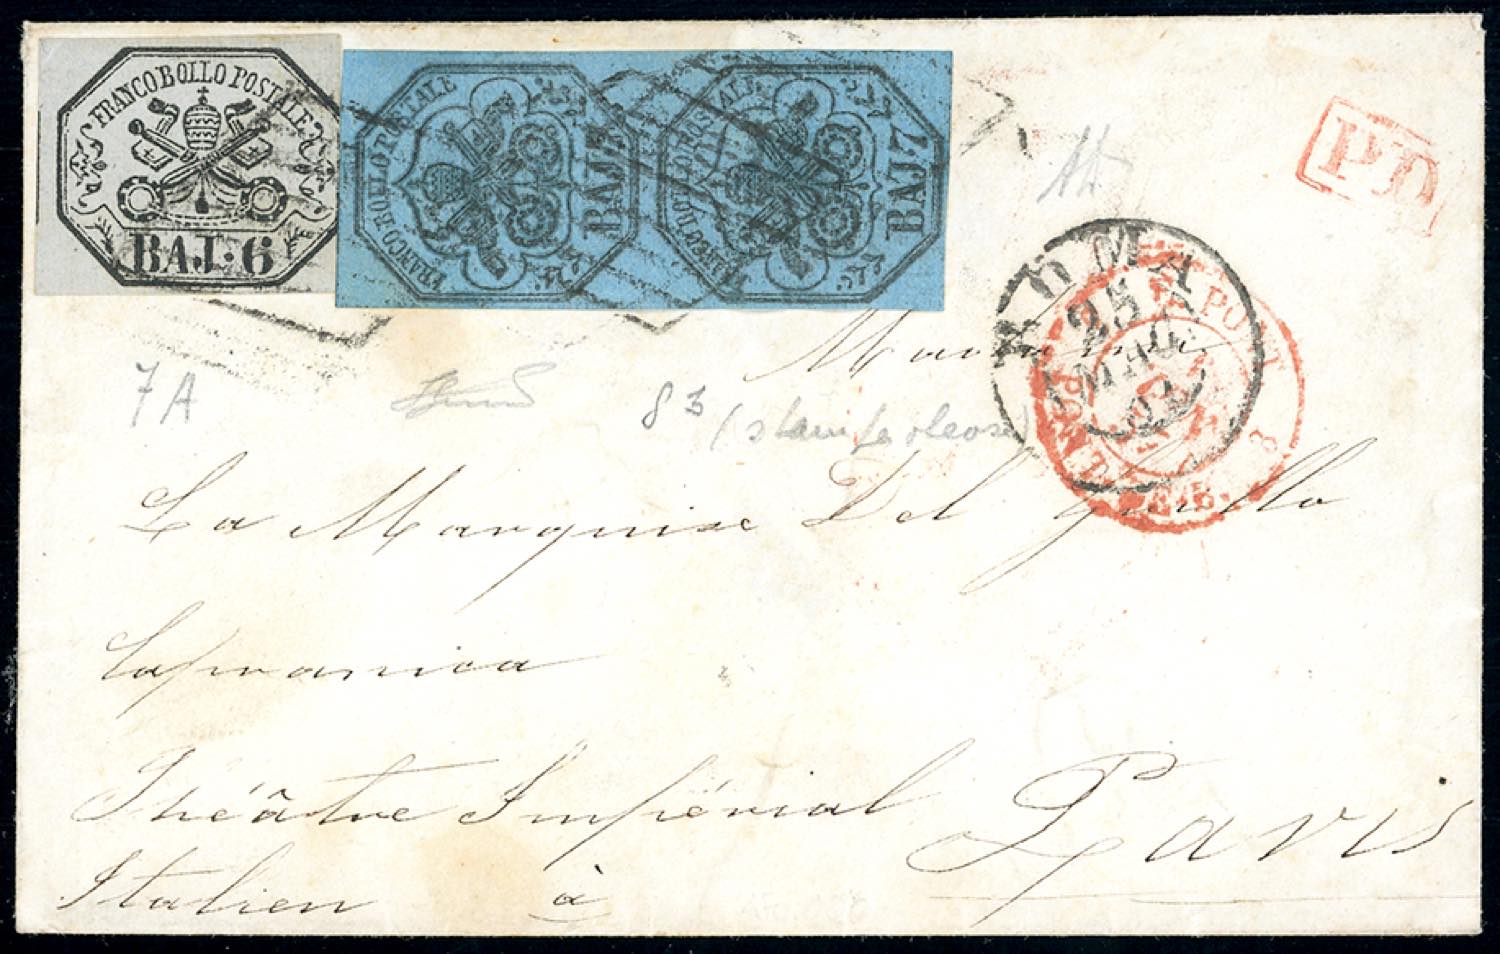 FRANCO BOLLO POSTALE
BAJ. 6
FRANCO BOLLO POSTALE
BAJ. 7
FRANCO BOLLO POSTALE
BAJ. 7
PD
ROMA
25
MAG
62
PONT
7A
83
Madame
La Marquise Del Grillo
Capranica
Théâtre Impérial
Italien à Paris